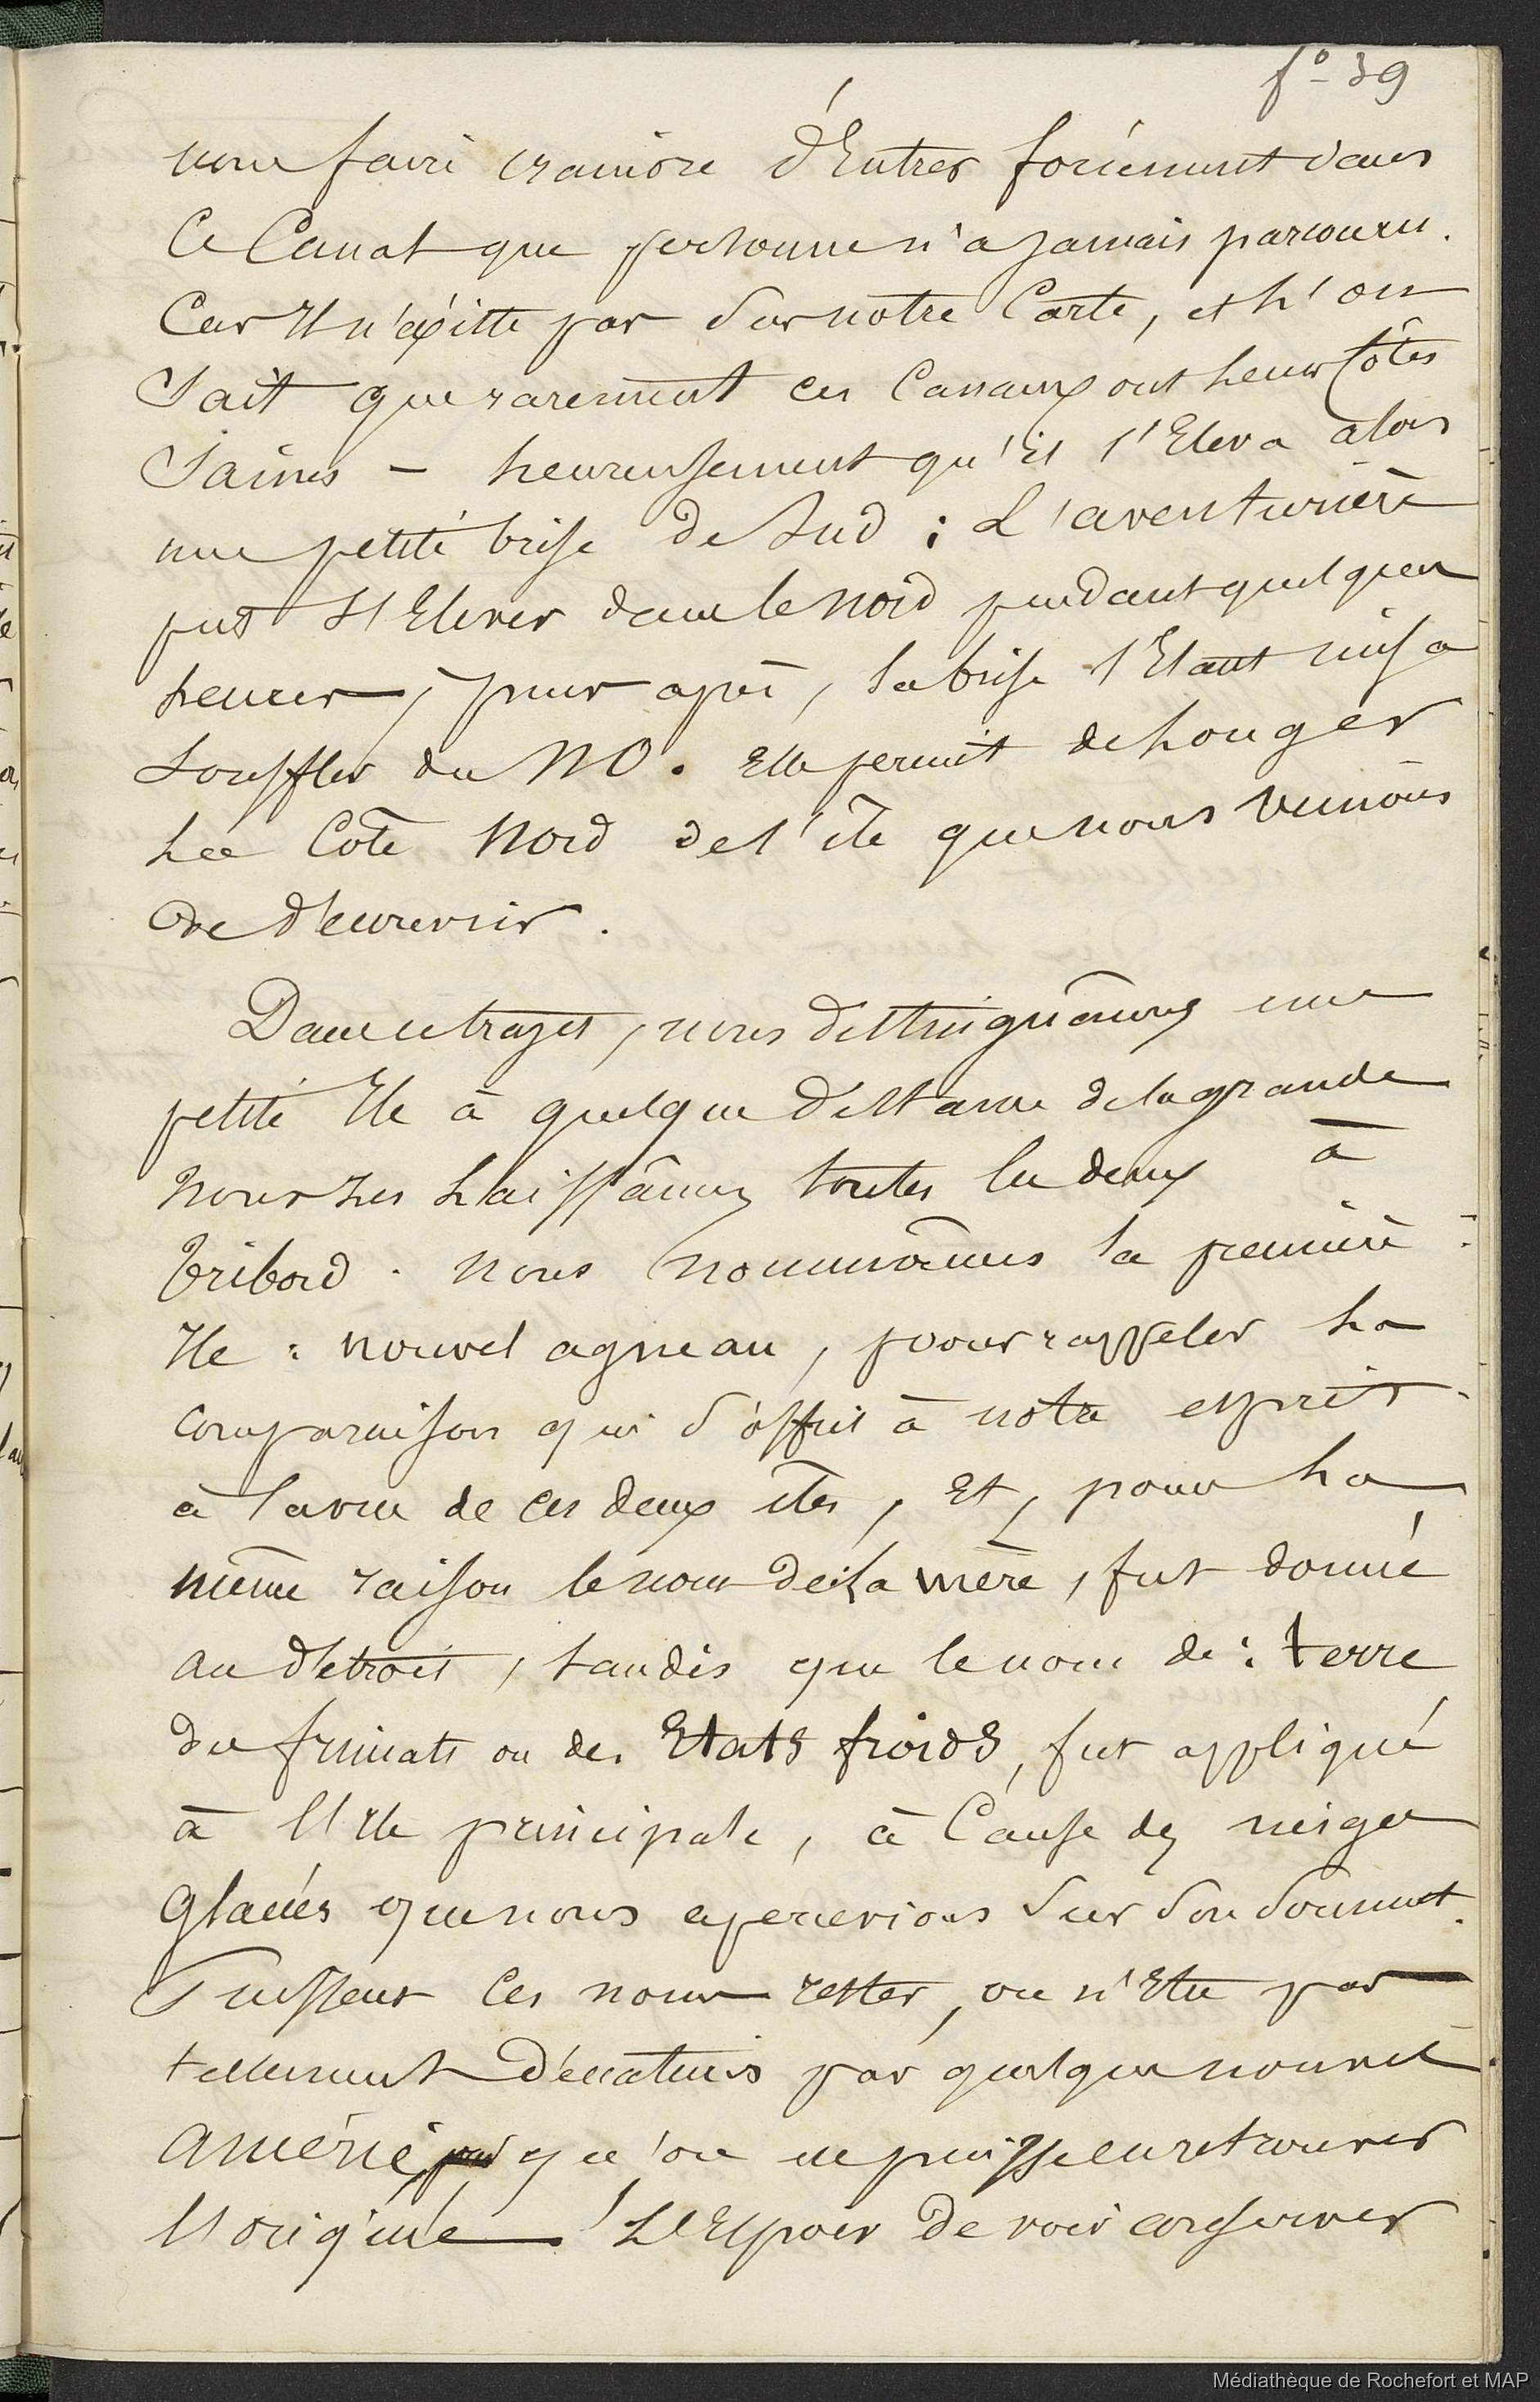 fo 39
nous faire craindre d'Entrer forcément dans
Ce Canal que personne n'a jamais parcouru.
Car Il n'éxiste pas sur notre Carte, et l'on
Sait que rarement ces Canaux ont leurs Côtes
Saines – heureusement qu'il s'Eleva alors
une petite brise de Sud ; L'aventurière
put s'Elever dans le Nord pendant quelques
heures, puis après, la brise s'Etant mise a
Souffler du NO. Elle permit de longer
La Côte Nord de l'île que nous venions
de d'écouvrir.
Dans ce trajet, nous distinguâmes une
petite Ile à quelque distance de la grande
Nous les Laissâmes toutes les deux à
tribord. Nous Nommâmes la première
Ile : nouvel agneau, pour rappeler La
comparaison qui s'offrit à notre esprit
à la vue de ces deux îles, Et, pour La
même raison le nom de la mère, fut donné
au d'étroit, tandis que le nom de : terre
du frimats ou des Etats froids, fut appliqué
à l'Ile principale, à Cause des neiges
Glacées que nous apercevions sur son sommet.
Puissent Ces noms rester, ou n'Etre pas
tellement Dénaturés par quelque nouvel
Améric, qu'on ne puisse en retrouver
l'origine ! L'Espoir de voir conserver
Médiathèque de Rochefort et MAP